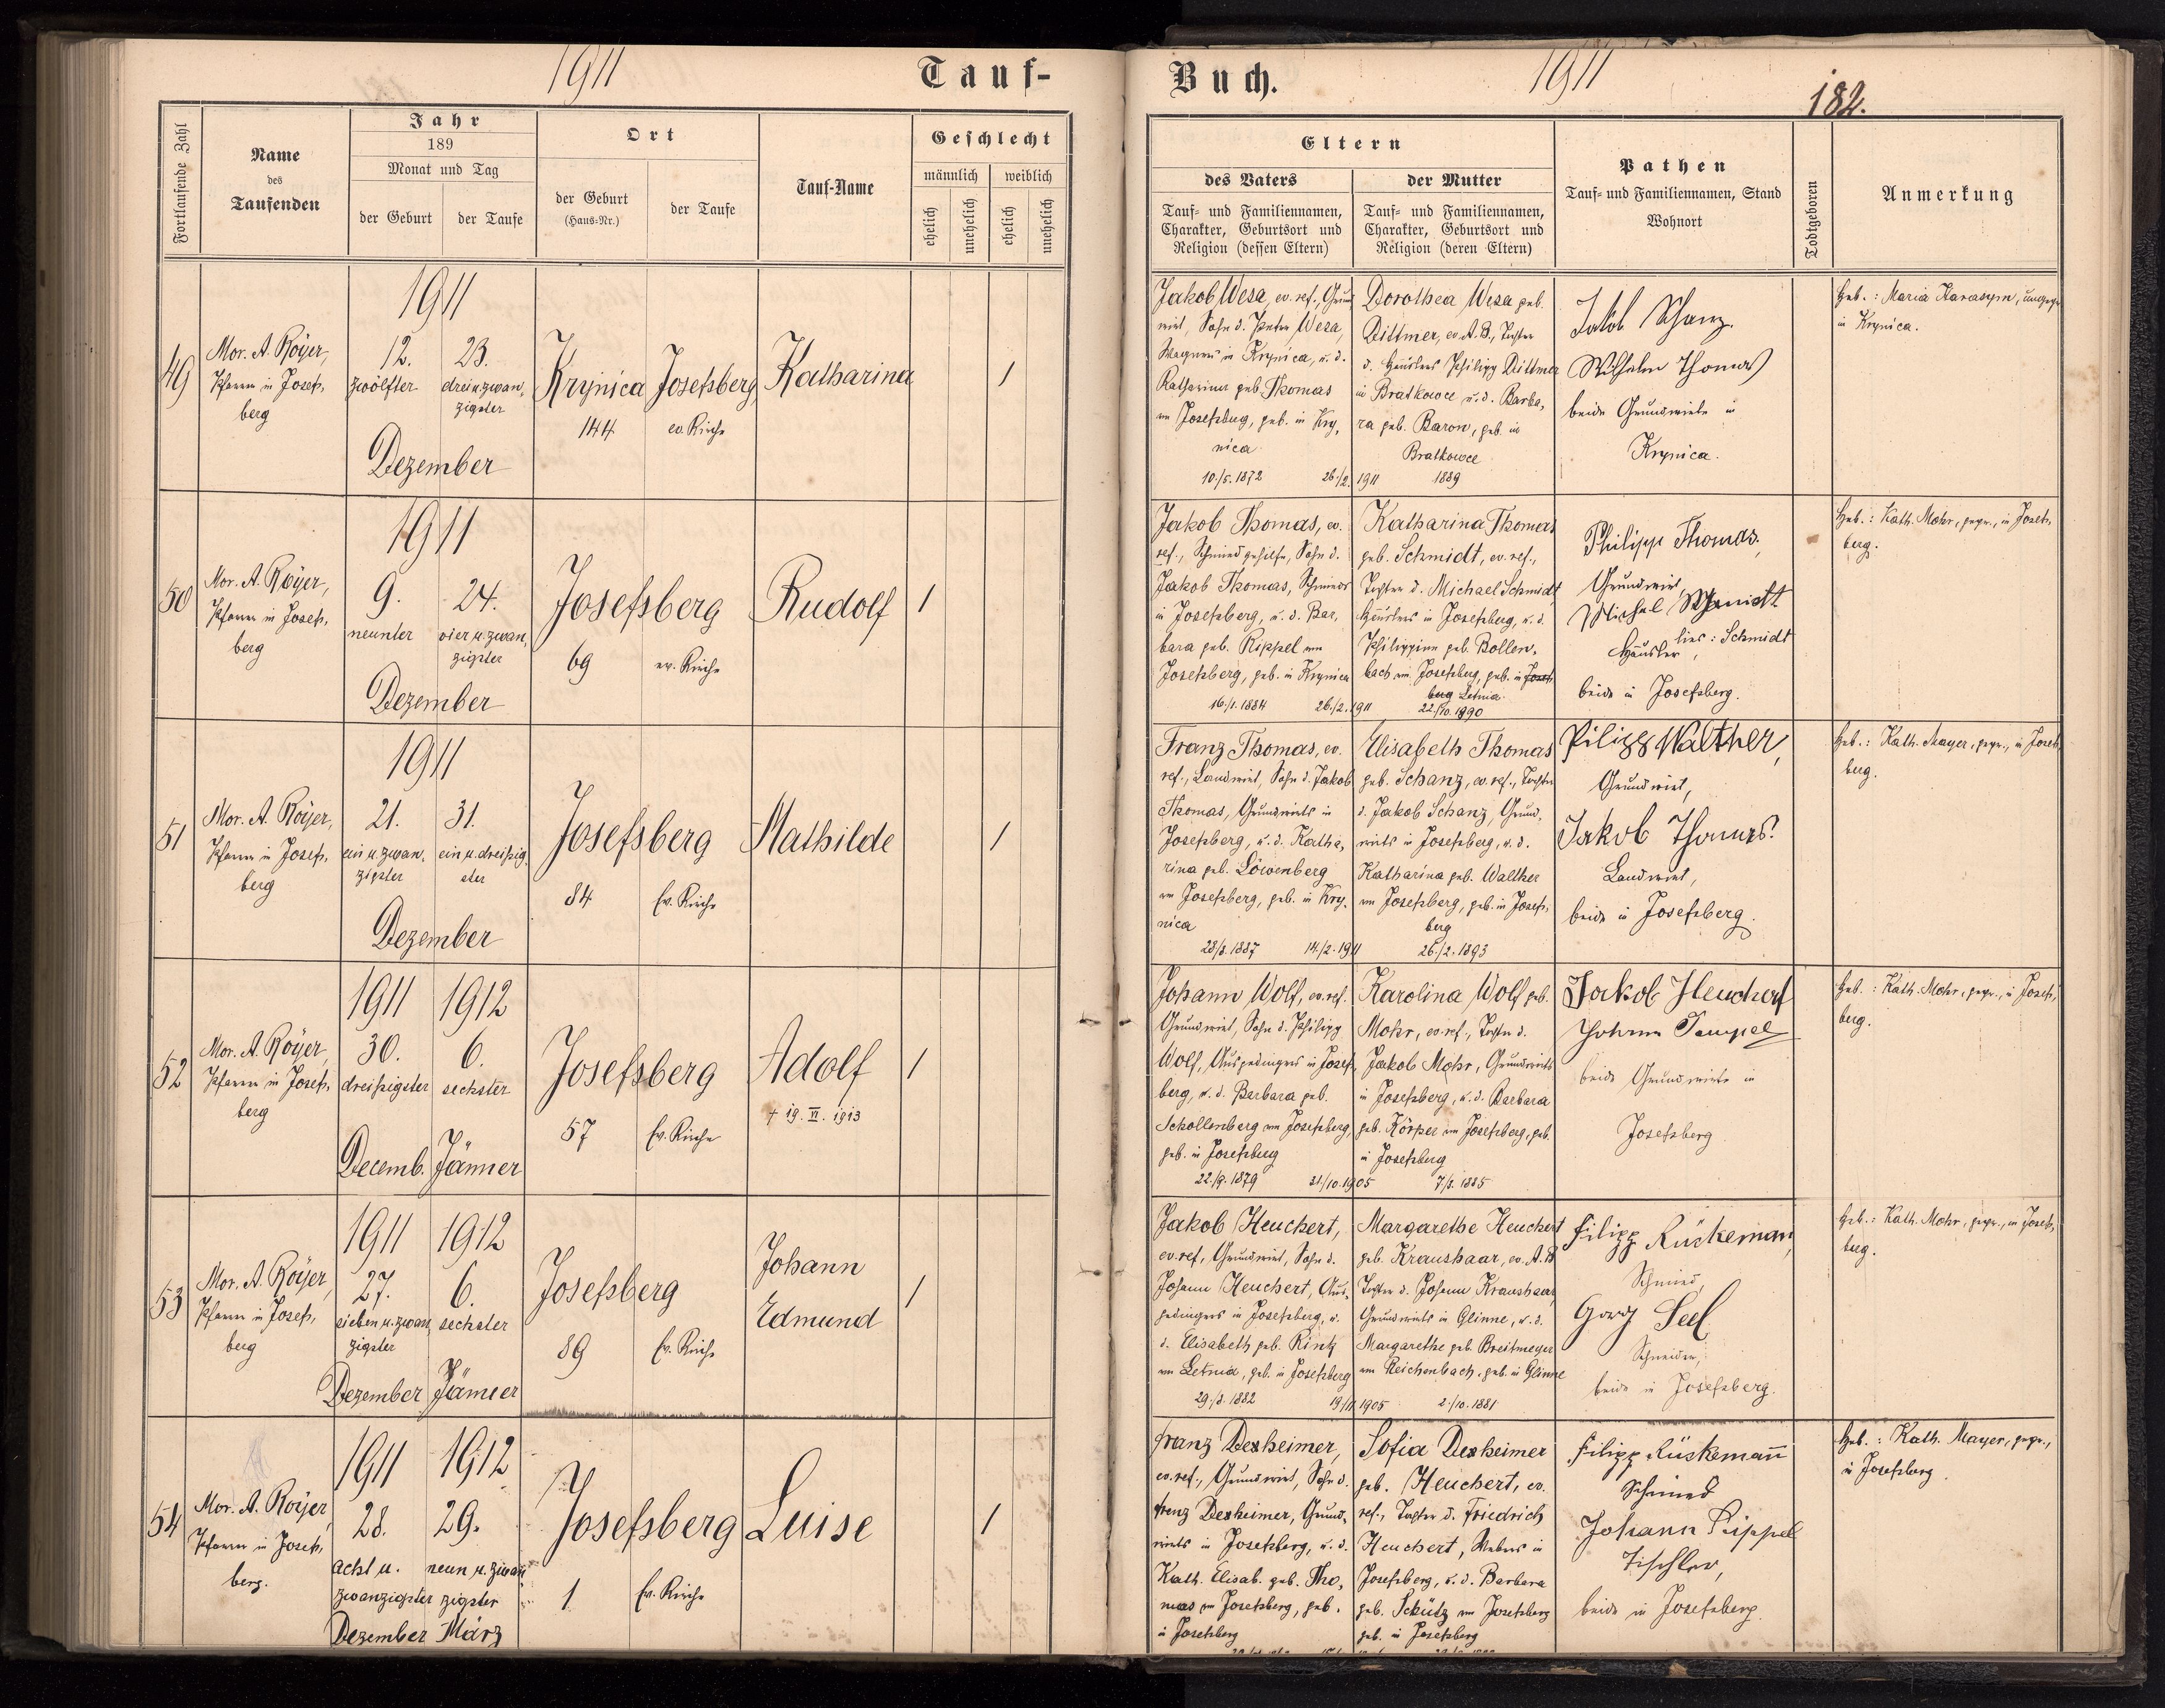 1911
Tauf-
Fortlaufende Zahl
Name
des
Taufenden
Jahr
189
Monat und Tag
der Geburt
der Taufe
Ort
der Geburt
(Haus-Nr.)
der Taufe
Tauf-Name
Geschlecht
männlich
weiblich
ehelich
unehelich
ehelich
unehelich
49
Mor. A. Royer,
Pfarrer in Josefs,
berg
1911
12. 23.
zwölfter dreiu.zwan,
zigster
Dezember
Krynica Josefsberg
144 ev. Kirche
Katharina
1
50
Mor. A. Royer,
Pfarrer in Josefs,
berg
1911
9. 24.
neunter vier u. zwan,
zigster
Dezember
Josefsberg
69 ev. Kirche
Rudolf
1
51
Mor. A. Royer,
Pfarrer in Josefs,
berg
1911
21. 31.
ein u. zwan, ein u. dreißig,
zigster ster
Dezember
Josefsberg
84 Ev. Kirche
Mathilde
1
52
Mor. A. Royer,
Pfarrer in Josefs,
berg
1911 1912
30. 6.
dreißigster sechster
Decemb. Jänner
Josefsberg
57 Ev. Kirche
Adolf
+ 19. VI. 1913
1
53
Mor. A. Royer,
Pfarrer in Josefs,
berg
1911 1912
27. 6.
sieben u. zwan, sechster
zigster
Dezember Jänner
Josefsberg
89 Ev. Kirche
Johann
Edmund
1
54
Mor. A. Royer,
Pfarrer in Josefs,
berg.
1911 1912
28. 29.
acht u. neun u. zwan,
zwanzigster zigster
Dezember März
Josefsberg
1 Ev. Kirche
Luise
1
Buch.
1911
182.
Eltern
des Vaters
Tauf- und Familiennamen,
Charakter, Geburtsort und
Religion (dessen Eltern)
der Mutter
Tauf- und Familiennamen,
Charakter, Geburtsort und
Religion (deren Eltern)
Pathen
Tauf- und Familiennamen, Stand
Wohnort
Todtgeboren
Anmerkung
Jakob Wesa, ev. ref., Grund,
wirt, Sohn d. Peter Wesa,
Wagners in Krynica, u. d.
Katharina geb. Thomas
von Josefsberg, geb. in Kry,
nica
10./5. 1872 26./2. 1911
Dorothea Wesa geb.
Dittmer, ev. A. B., Tochter
d. Häuslers Philipp Dittmer
in Bratkowce u. d. Barba,
ra geb. Baron, geb. in
Bratkowce
1889
Jakob Schanz.
Wilhelm Thomas
beide Grundwirte in
Krynica.
Heb.: Maria Harasym, ungepr.
in Krynica.
Jakob Thomas, ev.
ref., Schmiedgehilfe, Sohn d.
Jakob Thomas, Schmieds
in Josefsberg, u. d. Bar,
bara geb. Rippel von
Josefsberg, geb. in Krynica
16./1. 1884 26./2. 1911
Katharina Thomas
geb. Schmidt, ev. ref.,
Tochter d. Michael Schmidt,
Häuslers in Josefsberg, u. d.
Philippine geb. Bollen,
bach von Josefsberg, geb. in Josefs,
berg Letnia
22./10. 1890
Philipp Thomas,
Grundwirt,
Michal Schmidt
lies: Schmidt
Häusler,
beide in Josefsberg.
Heb.: Kath. Mohr, gepr., in Josefs,
berg.
Franz Thomas, ev.
ref., Landwirt, Sohn d. Jakob
Thomas, Grundwirts in
Josefsberg, u. d. Katha,
rina geb. Löwenberg
von Josefsberg, geb. in Kry,
nica
28/8. 1887 14./2. 1911
Elisabeth Thomas
geb. Schanz, ev. ref., Tochter
d. Jakob Schanz, Grund,
wirts in Josefsberg, u. d.
Katharina geb. Walther
von Josefsberg, geb. in Josefs,
berg
26./2. 1893
Pilipp Walther,
Grundwirt,
Jakob Thomas.
Landwirt,
beide in Josefsberg.
Heb.: Kath. Mayer, gepr., in Josefs,
berg.
Johann Wolf, ev. ref.
Grundwirt, Sohn d. Philipp
Wolf, Ausgedingers in Josefs,
berg, u. d. Barbara geb.
Schollenberg von Josefsberg,
geb. in Josefsberg
22./9. 1879 31./10. 1905
Karolina Wolf geb.
Mohr, ev. ref., Tochter d.
Jakob Mohr, Grundwirts
in Josefsberg, u. d. Barbara
geb. Körper von Josefsberg, geb.
in Josefsberg
7/8. 1885
Jakob Heuchert
Johann Tempel
beide Grundwirte in
Josefsberg
Heb.: Kath. Mohr, gepr., in Josefs,
berg.
Jakob Heuchert,
ev. ref., Grundwirt, Sohn d.
Johann Heuchert, Aus,
gedingers in Josefsberg, u.
d. Elisabeth geb. Rintz
von Letnia, geb. in Josefsberg
29./8. 1882 19./11. 1905
Margarethe Heuchert
geb. Kraushaar, ev. A. B
Tochter d. Johann Kraushaar,
Grundwirts in Glinne, u. d.
Margarethe geb. Breitmeyer
von Reichenbach, geb. in Glinne
2./10. 1881
Filipp Rückeman,
Schmied,
Georg Seel
Schneider,
beide in Josefsberg.
Heb.: Kath. Mohr, gepr., in Josefs,
berg.
Franz Dexheimer,
ev. ref., Grundwirt, Sohn d.
Franz Dexheimer, Grund,
wirts in Josefsberg, u. d.
Kath. Elisab. geb. Tho,
mas von Josefsberg, geb.
in Josefsberg
Sofia Dexheimer
geb. Heuchert, ev.
ref., Tochter d. Friedrich
Heuchert, Webers in
Josefsberg, u. d. Barbara
geb. Schütz von Josefsberg
geb. in Josefsberg
Filipp Rückemann
Schmied
Johann Rippel
Tischler,
beide in Josefsberg.
Heb.: Kath. Mayer, gepr.,
in Josefsberg.